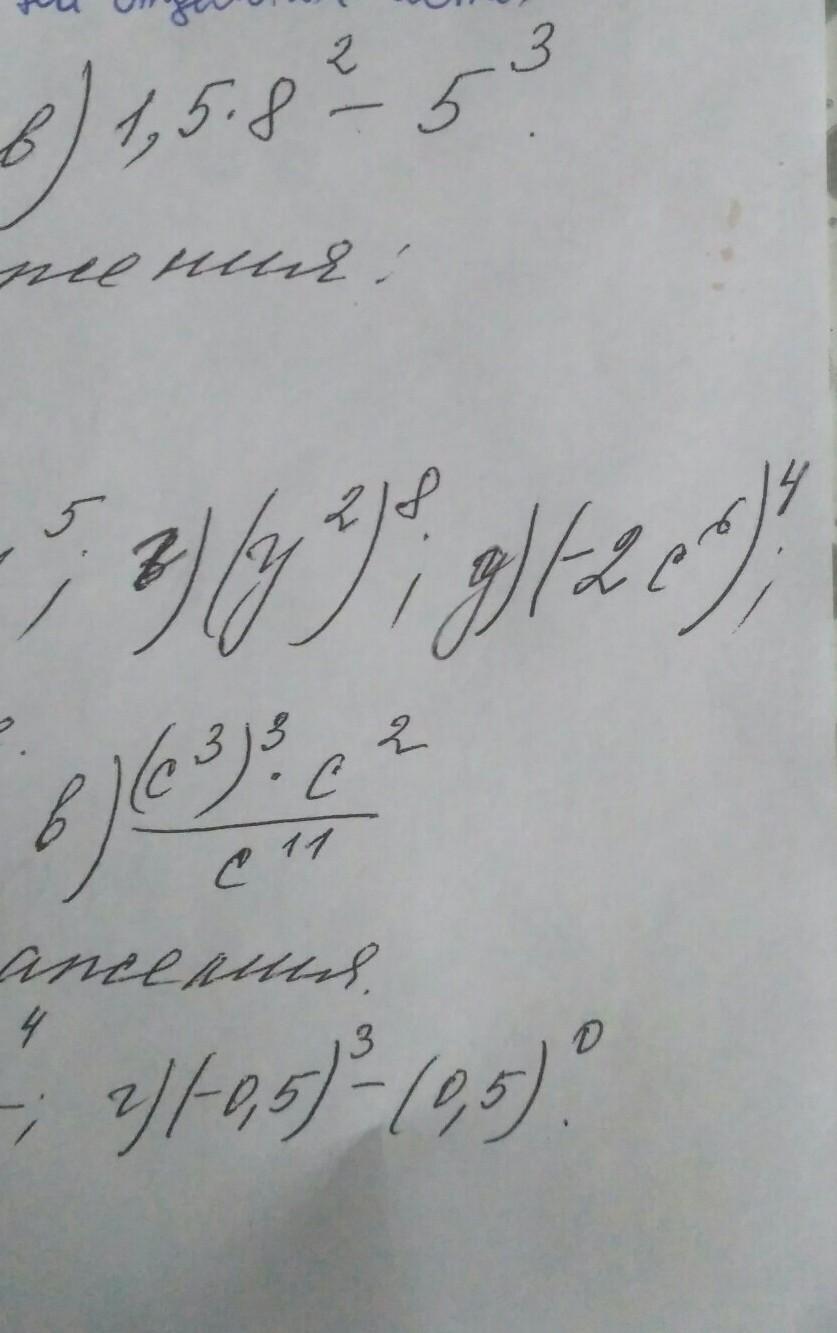 в) 1,5·8² - 5³.
жения:
⁵; г) (y²)⁸; д) (-2c⁶)⁴;
в) (c³)³·c² / c¹¹
ажения.
⁴; г) (-0,5)³ - (0,5)⁰.